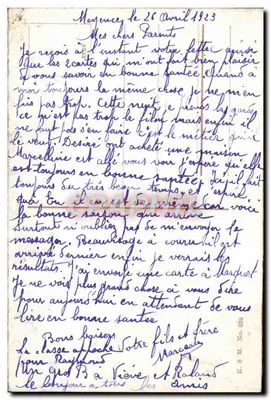 le 26 Avril 1923
Mes chers Parents
Je reçois à l'instant votre lettre ainsi
que les 2 cartes qui m'ont fait bien plaisir
de vous savoir en bonne santée. Quand à
moi toujours la même chose je ne m'en
fais pas trop. Cette nuit je prends la garde
ce n'est pas trop le filon mais enfin il
ne faut pas s'en faire c'est le métier qui
le veut. Desiré ont acheté une maison
Marcelline est allé vous voir j'espère qu'elle
est toujours en bonne santée. Ici il fait
toujours du très beau temps, et j'espère
qu'à toi il en est de même car voici
la bonne saison qui arrive
surtout n'oubliez pas de m'envoyer le
à couru il est
arrivé dernier enfin je verrais les
résultats. J'ai envoyé une carte à Marguet
Je ne vois plus grand chose à vous dire
pour aujourd'hui en attendant de vous
lire en bonne santée
Bons baisers
Votre fils et frère
la classe approche Marceau
pour Raymond
Un gros B à et Roland
le bonjour à tous les amis